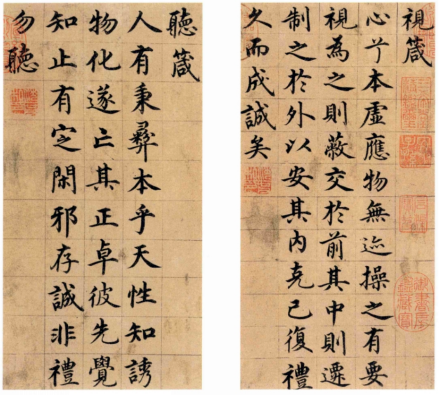 視箴
心兮本虛應物無迹操之有要
視為之則蔽交於前其中則遷
制之於外以安其内克己復禮
久而成誠矣
聽箴
人有秉彝本乎天性知誘
物化遂亡其正卓彼先覺
知止有定閑邪存誠非禮
勿聽